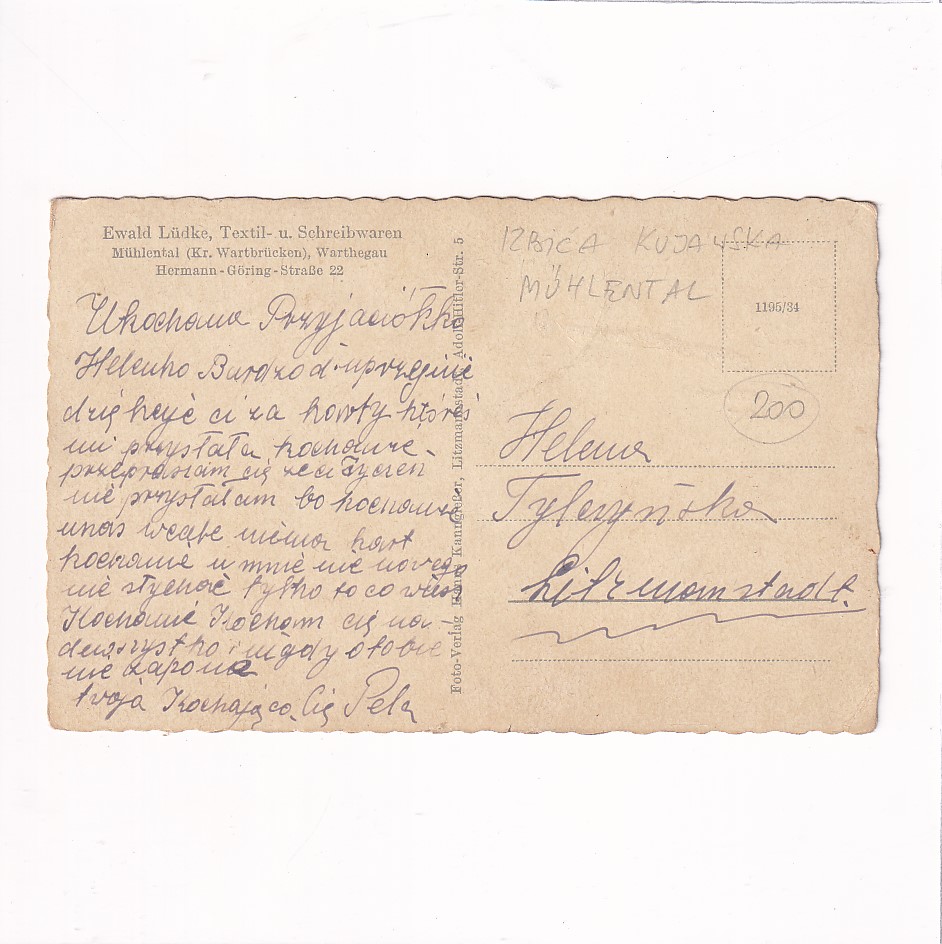 Ewald Lüdke, Textil- u. Schreibwaren
Mühlental (Kr. Wartbrücken), Warthegau
Hermann-Göring-Straße 22
Ukochana Przyjaciółko
Helenko Bardzo
dzię ci za karty któreś
mi przysłała kochanie
przepraszam cię że ci Życzeń
nie przysłałam bo kochanie
unas wcale niema kart
kochanie u mnie nic nowego
nie słychać tylko to co wiesz
Kochanie Kocham cię na-
dewszystko i nigdy o tobie
nie
twoja Kochająca Cię Pela
Foto-Verlag Kanngießer, Litzmannstadt, Adolf-Hitler-Str. 5
IZBICA KUJAWSKA
MÜHLENTAL
1195/34
200
Helena
Tylczyńska
Litzmanstadt.